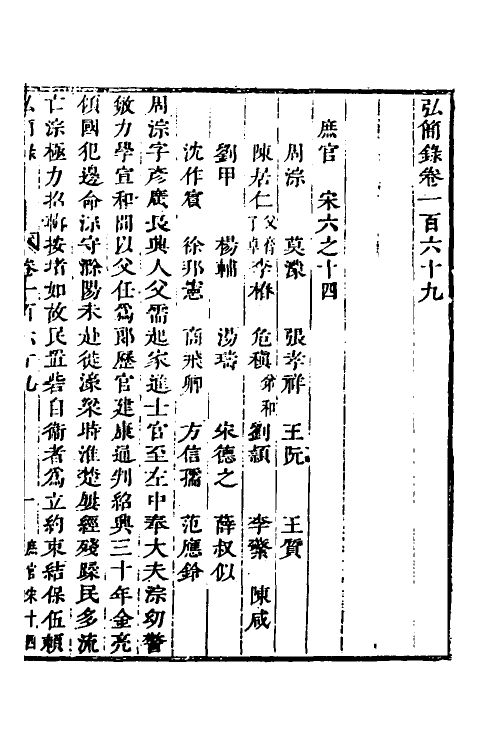 弘簡錄卷一百六十九
庶官　宋六之十四
周淙　莫濛　張孝祥　王阮　王質
陳居仁父膏子卓　李椿　危稹弟和　劉穎　李繁　陳咸
劉甲　楊輔　湯璹　宋德之　薛叔似
沈作賓　徐邦憲　商飛卿　方信孺　范應鈴
周淙字彥廣長興人父儒起家進士官至左中奉大夫淙幼警
敏力學宣和間以父任為郎歷官建康通判紹興三十年金亮
傾國犯邊命淙守滁陽未赴徙濠梁時淮楚屢經殘蹂民多流
亡淙極力招輯按堵如故民置砦自衛者為立約束結保伍賴
弘簡錄　卷一百六十九　一　庶官宋十四